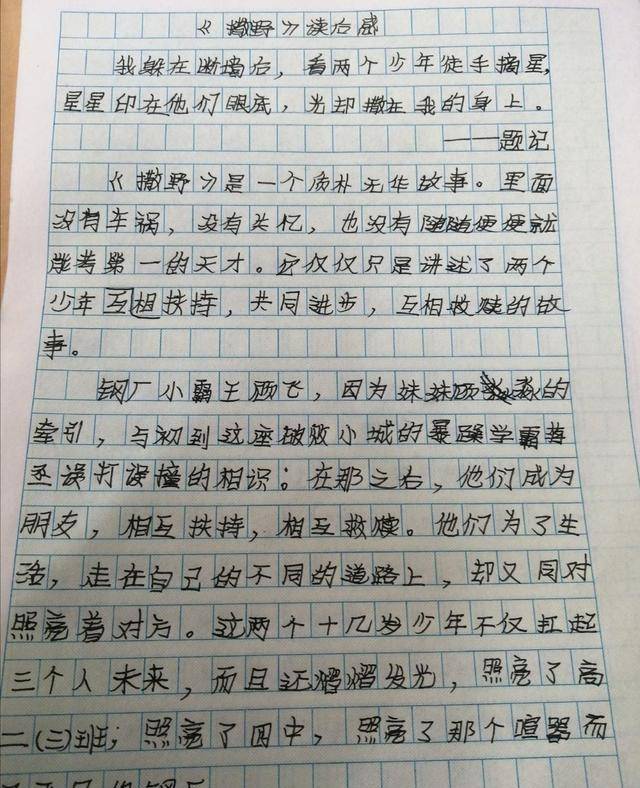 《撒野》读后感
我躲在断墙后，看两个少年徒手摘星，
星星印在他们眼底，光却撒在我的身上。
——题记
《撒野》是一个质朴无华故事。里面
没有车祸，没有失忆，也没有随随便便就
能考第一的天才。它仅仅只是讲述了两个
少年互相扶持，共同进步，互相救赎的故
事。
钢厂小霸王顾飞，因为妹妹顾淼的
牵引，与初到这座破败小城的暴躁学霸蒋
丞误打误撞的相识；在那之后，他们成为
朋友，相互扶持，相互救赎。他们为了生
活，走在自己的不同的道路上，却又同对
照亮着对方。这两个十几岁少年不仅扛起
三个人未来，而且还熠熠发光，照亮了高
二(三)班；照亮了四中，照亮了那个喧嚣而